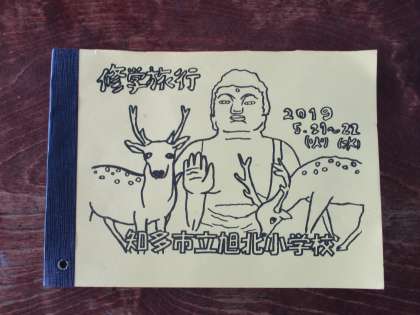 修学旅行
2019
5.21～22
(火) (水)
知多市立旭北小学校